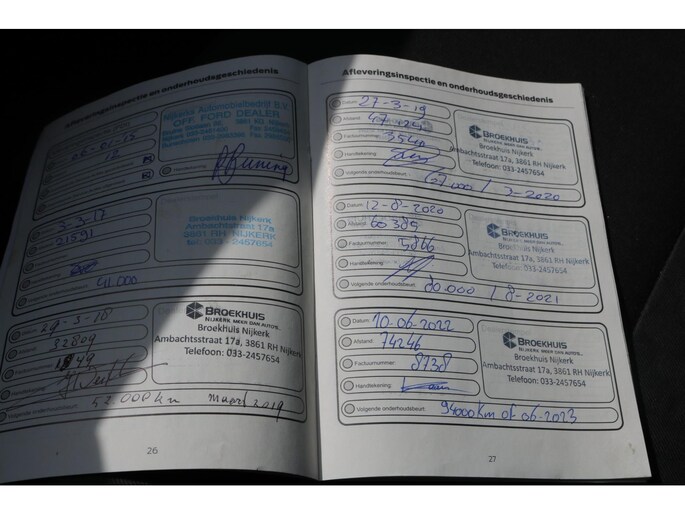 Afleveringsinspectie en onderhoudsgeschiedenis
Nijkerks Automobielbedrijf B.V.
OFF. FORD DEALER
12
Handtekening
3-3-17
21591
41.000
Broekhuis Nijkerk
Ambachtsstraat 17a
3861 RH Nijkerk
Tel: 033 - 2457654
29-3-18
32809
1849
52000km maart 2019
BROEKHUIS
NIJKERK MEER DAN AUTO'S..
Broekhuis Nijkerk
Ambachtsstraat 17a, 3861 RH Nijkerk
Telefoon: 033-2457654
26
Afleveringsinspectie en onderhoudsgeschiedenis
Datum: 27-3-19
Afstand:
Factuurnummer: 3540
Handtekening:
Volgende onderhoudsbeurt: 67.000 / 3-2020
BROEKHUIS
NIJKERK MEER DAN AUTO'S..
Broekhuis Nijkerk
Ambachtsstraat 17a, 3861 RH Nijkerk
Telefoon: 033-2457654
Datum: 12-8-2020
Afstand: 60385
Factuurnummer: 5866
Handtekening:
Volgende onderhoudsbeurt: 80.000 / 8-2021
BROEKHUIS
NIJKERK MEER DAN AUTO'S..
Broekhuis Nijkerk
Ambachtsstraat 17a, 3861 RH Nijkerk
Telefoon: 033-2457654
Datum: 10-06-2022
Afstand: 74246
Factuurnummer: 8738
Handtekening:
Volgende onderhoudsbeurt: 94000km of 06-2023
BROEKHUIS
NIJKERK MEER DAN AUTO'S..
Broekhuis Nijkerk
Ambachtsstraat 17a, 3861 RH Nijkerk
Telefoon: 033-2457654
27